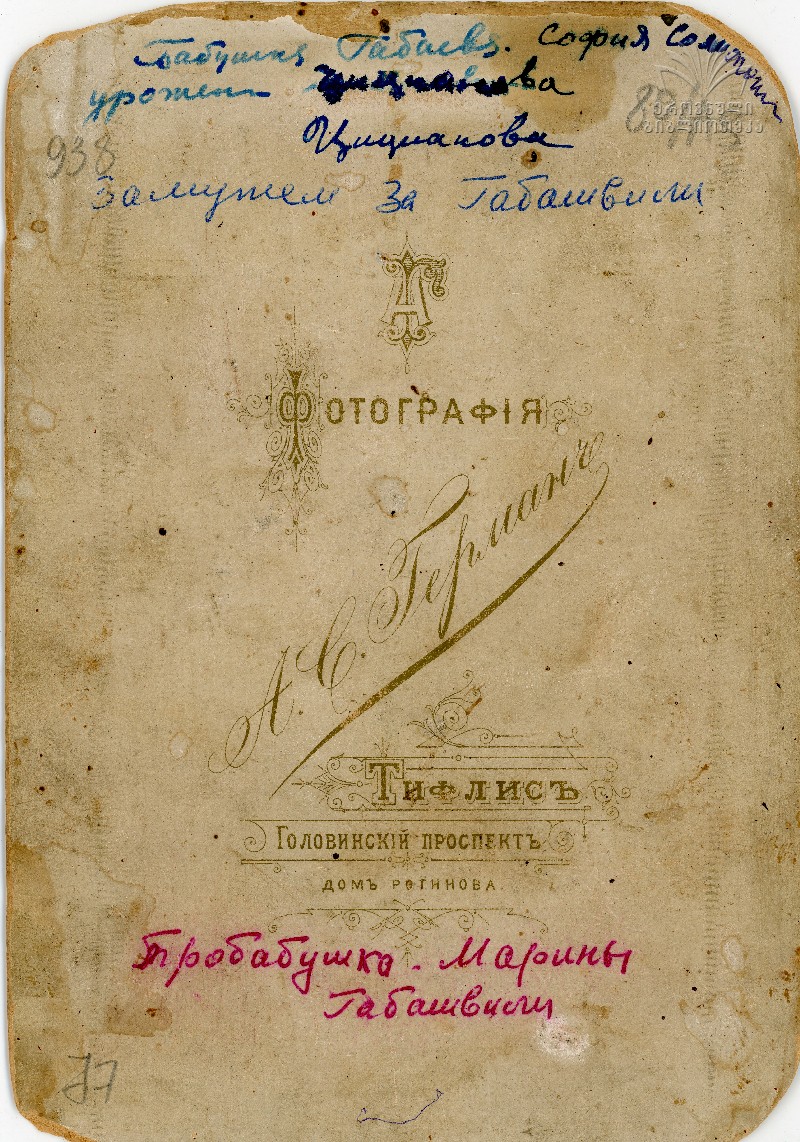 Бабушка Габаева. София Соломон
урожен Цицианова
938
ეროვნული
ბიბლიოთეკა
Цицианова
Замужем за Габашвили
АГ
Фотографія
А. С. Германъ
Тифлисъ
Головинскій проспектъ
домъ Ротинова.
Пробабушка. Марины
Габашвили
77